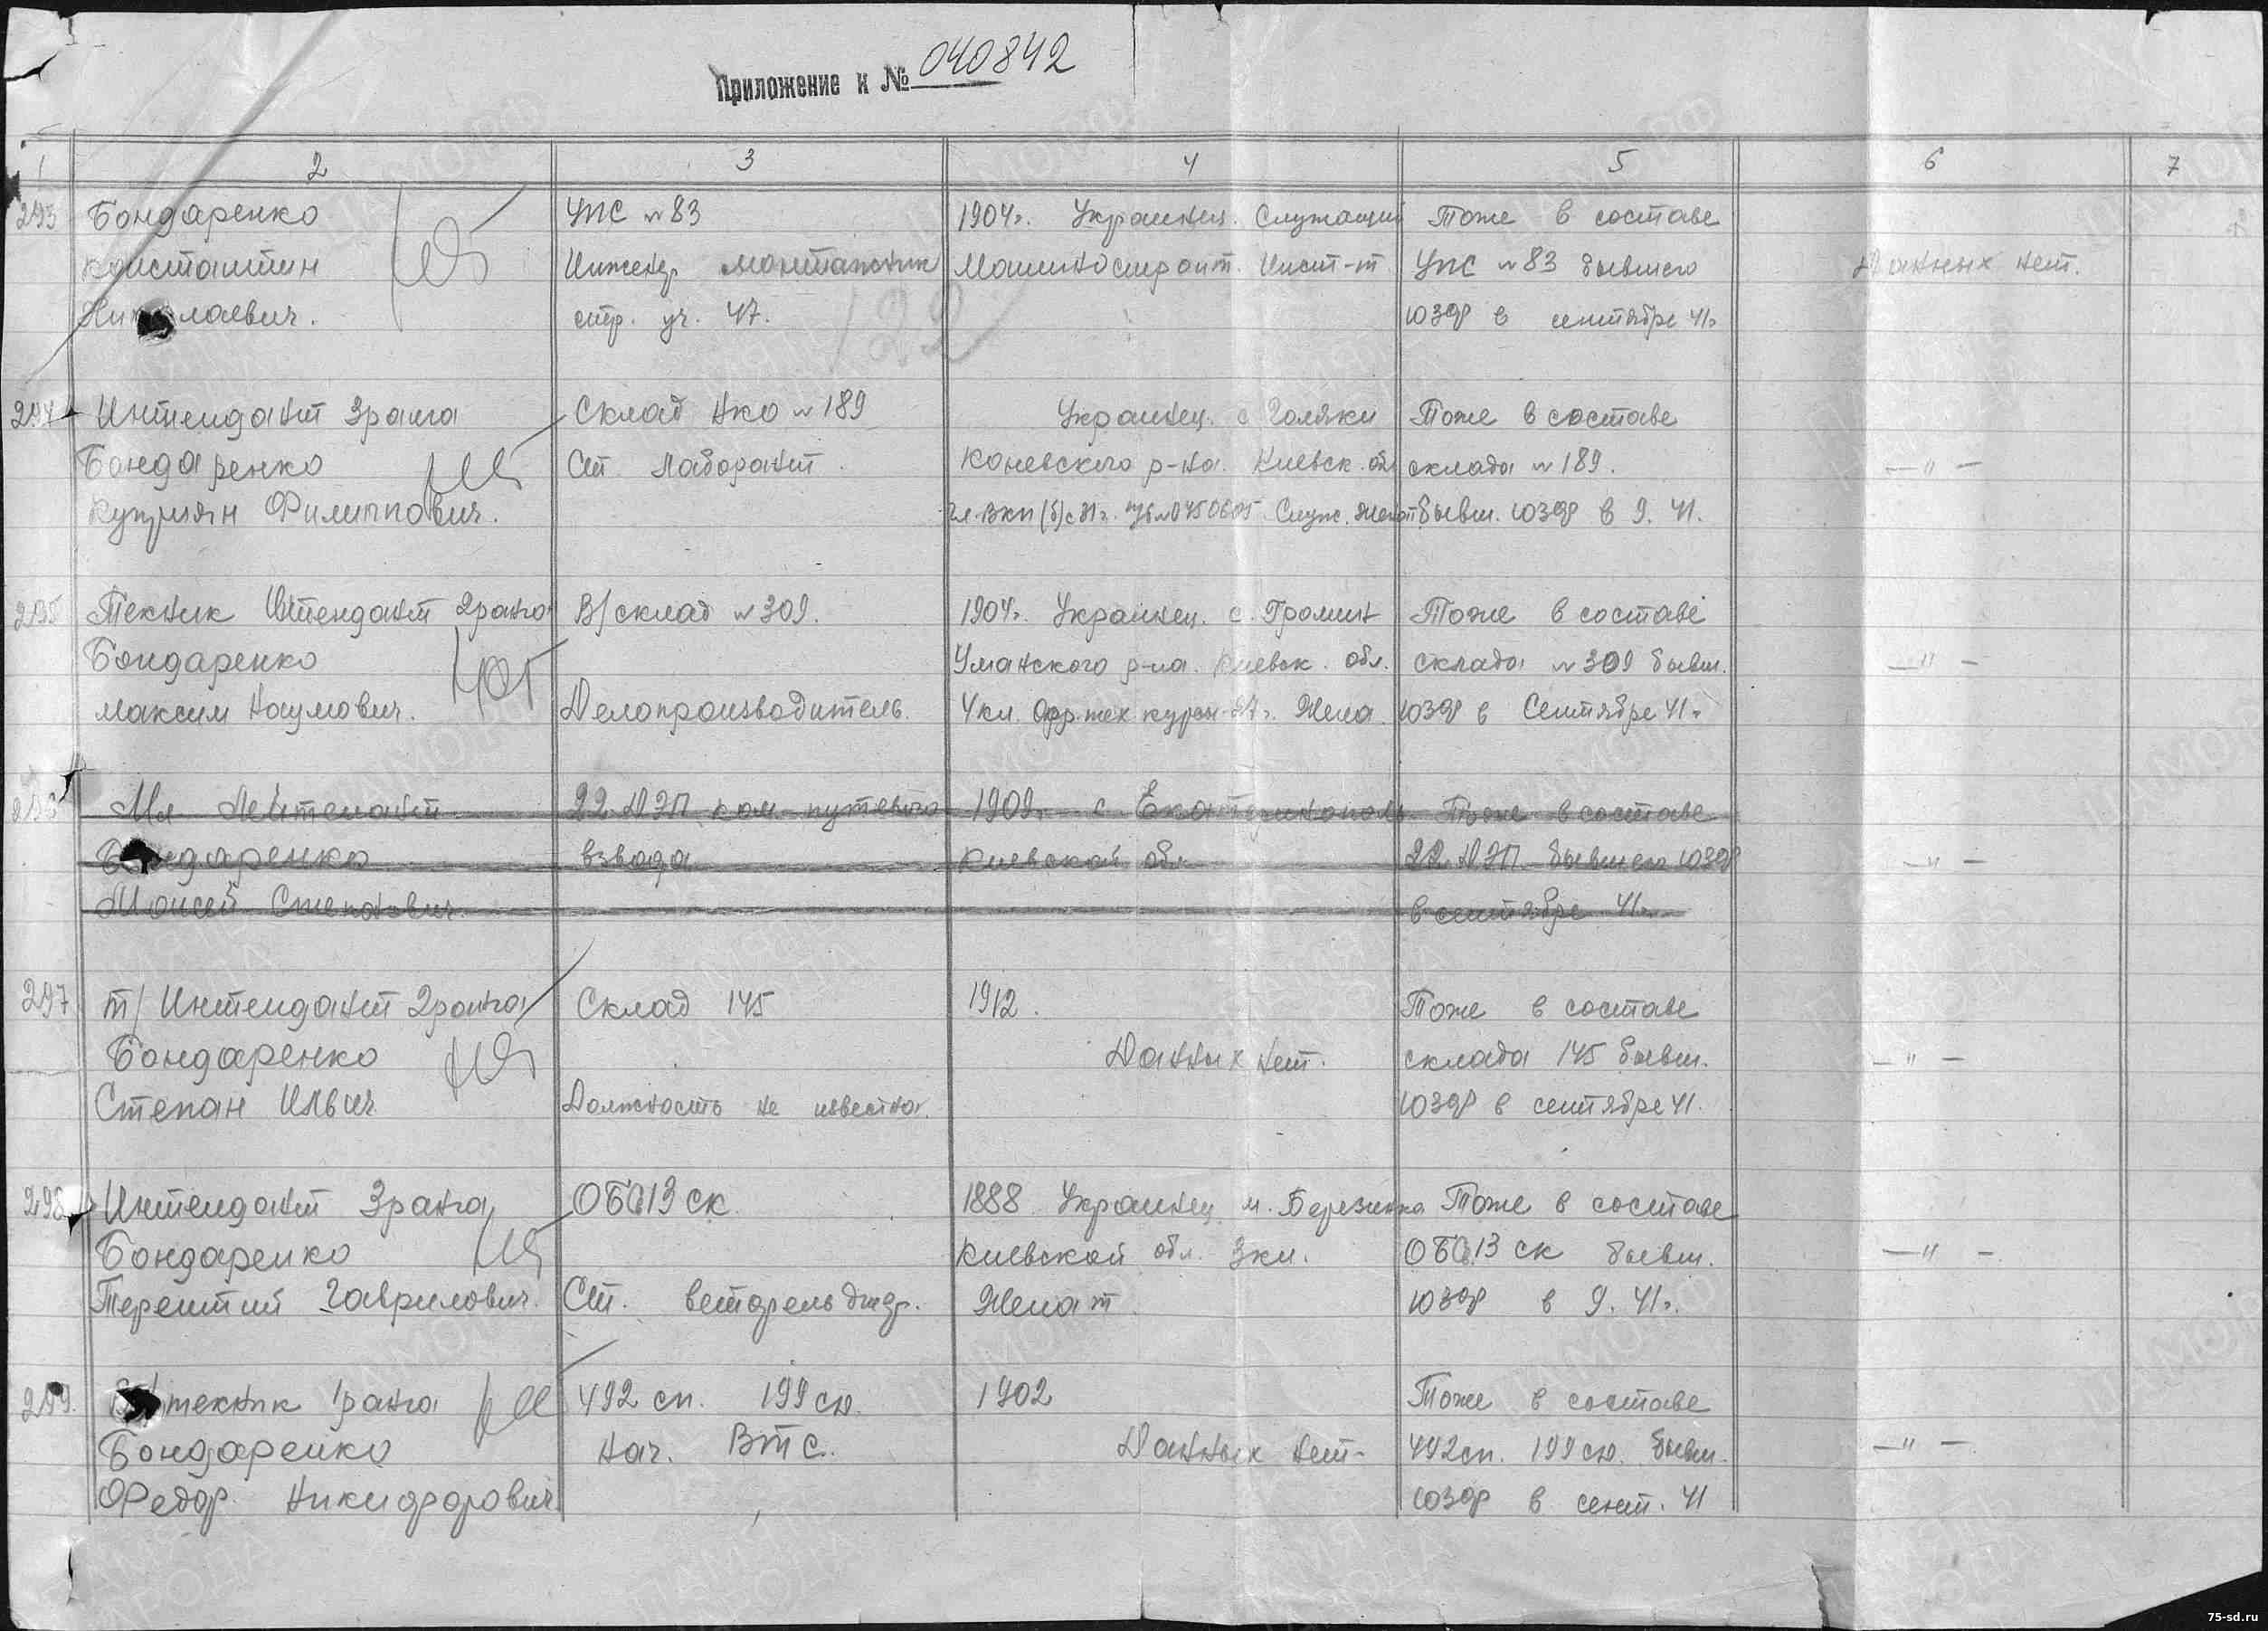 Приложение к № 040842
1 2 3 4 5 6 7
293 Бондаренко УПС №83 1904г. Украинец. Служащий Тоже в составе
Константин Инженер монтажник Машиностроит. Инст-т УПС №83 бывшего Данных нет.
Николаевич. стр. уч. 47. ЮЗФ в сентябре 41г.
122
294 Интендант 3 ранга Склад НКО №189 Украинец. с Голяки Тоже в составе
Бондаренко Ст. Лаборант. Каневского р-на. Киевск. об склада №189. —"—
Куприян Филиппович. Чл. ВКП(б) с 31г. №0450605 Служ. Женат бывш. ЮЗФ в 9. 41.
295 Техник Интендант 2 ранга В/склад №309. 1904г. Украинец. с. Тоже в составе
Бондаренко Уманского р-на. Киевск. обл. склада №309 бывш. —"—
Максим Наумович. Делопроизводитель. 4 кл. Жена. ЮЗФ в Сентябре 41г.
Мл Лейтенант 22 ДЭП ком. путевого 1909г. с Екатеринополь Тоже в составе
Бондаренко взвода Киевской обл. 22 ДЭП бывшего ЮЗФ —"—
Моисей Степанович. в сентябре 41г.
297 т/Интендант 2 ранга Склад 145 1912. Тоже в составе
Бондаренко Данных нет. склада 145 бывш. —"—
Степан Ильич Должность не известна. ЮЗФ в сентябре 41.
298 Интендант 3 ранга ОБС 13 ск 1888 Украинец м. Березинка Тоже в составе
Бондаренко Киевской обл. 3 кл. ОБС 13 ск бывш. —"—
Терентий Гаврилович. Ст. ветфельдшер. Женат. ЮЗФ в 9. 41г.
299. В/техник 1 ранга 492 сп. 199 сд. 1902 Тоже в составе
Бондаренко Нач. ВТС. Данных нет- 492 сп. 199 сд. бывш. —"—
Федор. Никифорович ЮЗФ в сент. 41
75-sd.ru